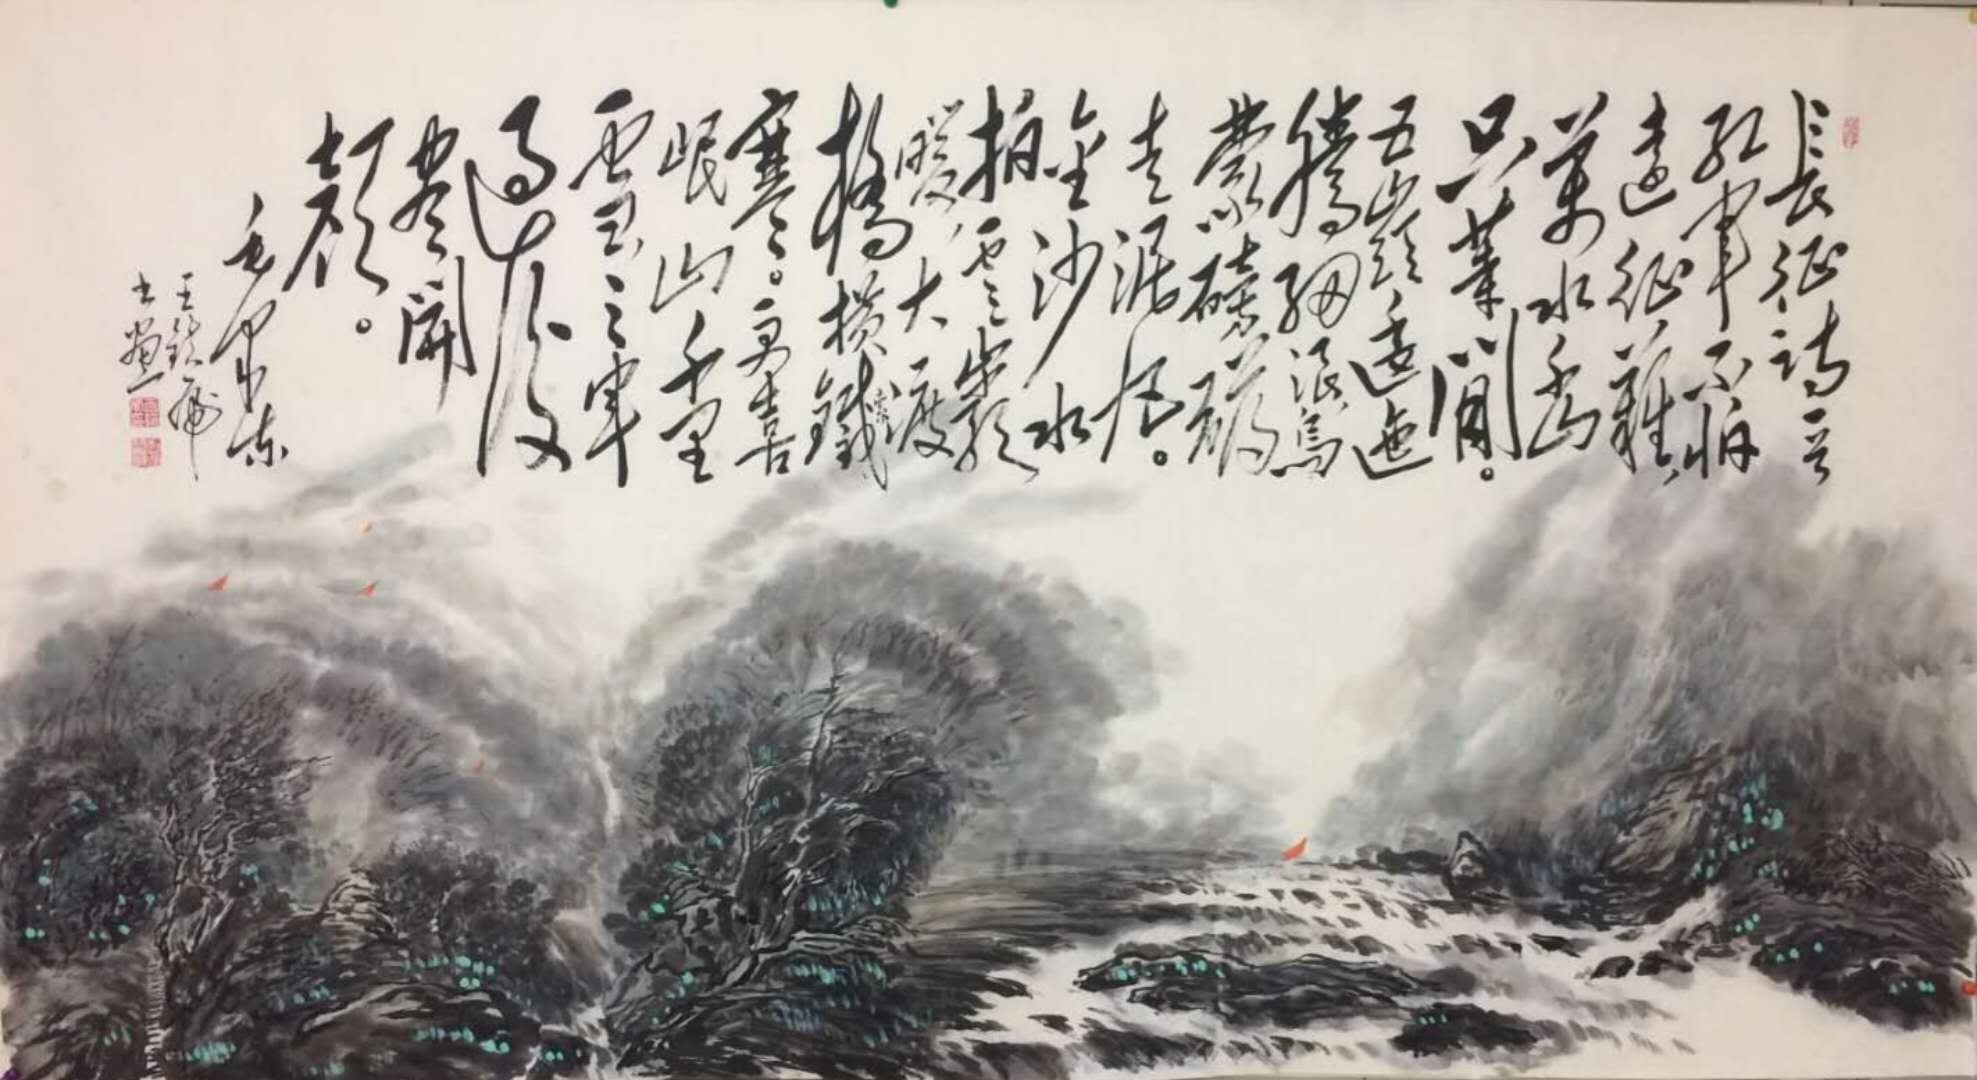 長征诗
红軍不怕
遠征難
萬水千山
只等閒。
五嶺逶迤
騰細浪烏
蒙磅礴
走泥丸。
金沙水
拍雲崖
暖大渡
橋横鐵索
寒。更喜
岷山千里
雪三軍
過後
盡開
顏。
毛澤東
王
书画